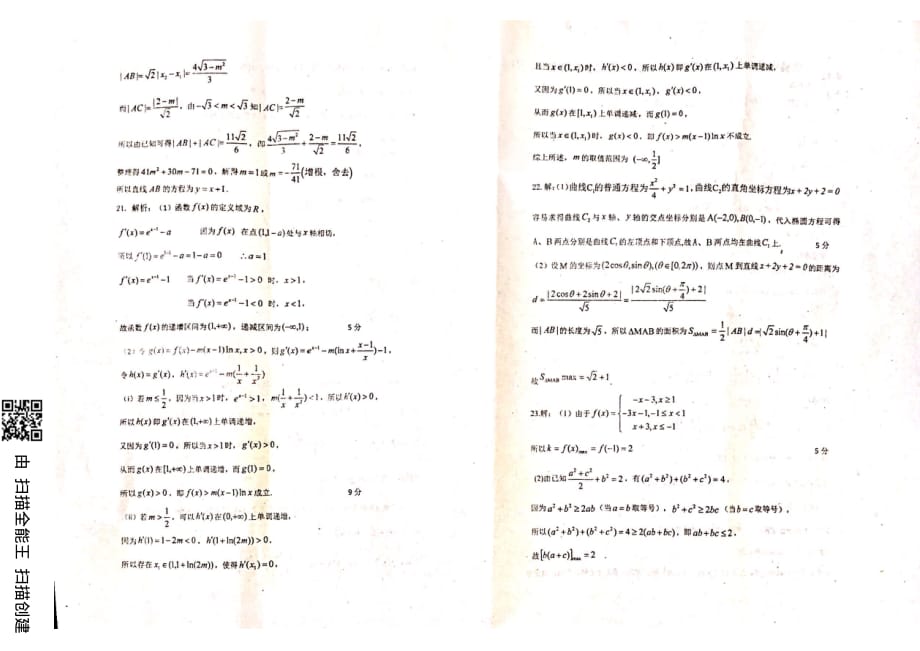 |AB|=√2|x₂-x₁|=4√(3-m²)/3
而|AC|=|2-m|/√2，由-√3<m<√3知|AC|=(2-m)/√2
所以由已知可得|AB|+|AC|=11√2/6，即4√(3-m²)/3+(2-m)/√2=11√2/6，
整理得41m²+30m-71=0，解得m=1或m=-71/41(增根，舍去)
所以直线AB的方程为y=x+1.
21. 解析：（1）函数f(x)的定义域为R，
f'(x)=eˣ⁻¹-a 因为f(x)在点(1,1-a)处与x轴相切，
所以f'(1)=e¹⁻¹-a=1-a=0 ∴a=1
f'(x)=eˣ⁻¹-1 当f'(x)=eˣ⁻¹-1>0时，x>1，
当f'(x)=eˣ⁻¹-1<0时，x<1，
故函数f(x)的递增区间为(1,+∞)，递减区间为(-∞,1)； 5分
（2）令g(x)=f(x)-m(x-1)lnx,x>0，则g'(x)=eˣ⁻¹-m(lnx+(x-1)/x)-1，
令h(x)=g'(x)，h'(x)=eˣ⁻¹-m(1/x+1/x²)
(i)若m≤1/2，因为当x>1时，eˣ⁻¹>1，m(1/x+1/x²)<1，所以h'(x)>0
所以h(x)即g'(x)在(1,+∞)上单调递增，
又因为g'(1)=0，所以当x>1时，g'(x)>0，
从而g(x)在[1,+∞)上单调递增，而g(1)=0，
所以g(x)>0，即f(x)>m(x-1)lnx成立. 9分
(ii)若m>1/2，可以h'(x)在(0,+∞)上单调递增，
因为h'(1)=1-2m<0，h'(1+ln(2m))>0，
所以存在x₁∈(1,1+ln(2m))，使得h'(x₁)=0，
且当x∈(1,x₁)时，h'(x)<0，所以h(x)即g'(x)在(1,x₁)上单调递减，
又因为g'(1)=0，所以当x∈(1,x₁)，g'(x)<0，
从而g(x)在[1,x₁)上单调递减，而g(1)=0，
所以当x∈(1,x₁)时，g(x)<0，即f(x)>m(x-1)lnx不成立
综上所述，m的取值范围为(-∞,1/2]
22. 解：(1)曲线C₁的普通方程为x²/4+y²=1，曲线C₂的直角坐标方程为x+2y+2=0
容易求得曲线C₂与x轴、y轴的交点坐标分别是A(-2,0),B(0,-1)，代入椭圆方程可得
A、B两点分别是曲线C₁的左顶点和下顶点,故A、B两点均在曲线C₁上. 5分
（2）设M的坐标为(2cosθ,sinθ),(θ∈[0,2π))，则点M到直线x+2y+2=0的距离为
d=|2cosθ+2sinθ+2|/√5=|2√2sin(θ+π/4)+2|/√5
而|AB|的长度为√5，所以ΔMAB的面积为S_ΔMAB=1/2|AB|d=|√2sin(θ+π/4)+1|
故S_ΔMAB max=√2+1.
23.解：（1）由于f(x)={-x-3,x≥1
-3x-1,-1≤x<1
x+3,x≤-1
所以k=f(x)max=f(-1)=2 5分
(2)由已知(a²+c²)/2+b²=2，有(a²+b²)+(b²+c²)=4，
因为a²+b²≥2ab（当a=b取等号），b²+c²≥2bc（当b=c取等号），
所以(a²+b²)+(b²+c²)=4≥2(ab+bc)，即ab+bc≤2，
故[b(a+c)]max=2.
由 扫描全能王 扫描创建